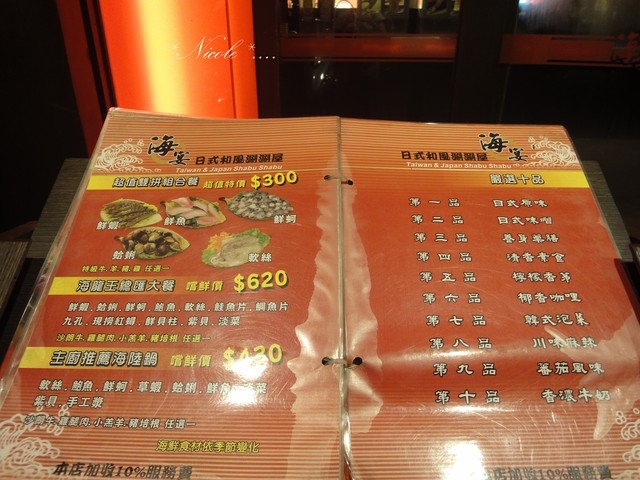 *Nicole*....
海宴 日式和風涮涮屋
Taiwan & Japan Shabu Shabu
超值雙拼組合餐 超值特價 $300
鮮蝦 鮮魚 鮮蚵
蛤蜊 軟絲
特級牛.羊.豬.雞 任選一
海龍王總匯大餐 嚐鮮價 $620
鮮蝦、蛤蜊、鮮蚵、鮑魚、軟絲、鮭魚片、鯛魚片
九孔、現撈紅蟳、鮮貝柱、紫貝、淡菜
沙朗牛.雞腿肉.小羔羊.豬培根 任選一
主廚推薦海陸鍋 嚐鮮價 $420
軟絲、鮑魚、鮮蚵、草蝦、蛤蜊、鮮魚、淡菜
紫貝、手工漿
沙朗牛.雞腿肉.小羔羊.豬培根 任選一
海鮮食材依季節變化
本店加收10%服務費
海宴 日式和風涮涮屋
Taiwan & Japan Shabu Shabu
嚴選十品
第一品 日式原味
第二品 日式味噌
第三品 養身藥膳
第四品 清香素食
第五品 檸檬香茅
第六品 椰香咖哩
第七品 韓式泡菜
第八品 川味麻辣
第九品 蕃茄風味
第十品 香濃牛奶
本店加收10%服務費